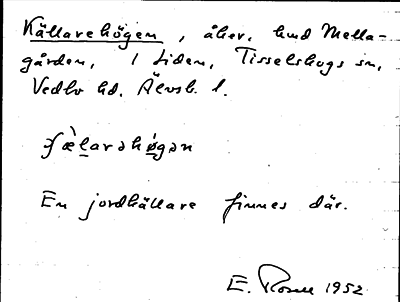 Källarehögen, åker, hmd Mella-
gården, 1 Liden, Tisselskogs sn,
Vedbo hd. Älvsb. l.
ʃæ̀larəhøgən
En jordkällare finnes där.
E. Rosen 1952